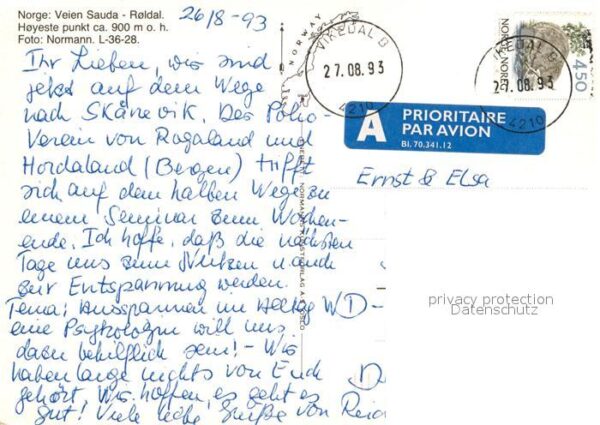 Norge: Veien Sauda - Røldal.
Høyeste punkt ca. 900 m o. h.
Foto: Normann. L-36-28.
26/8-93
Ihr Lieben, wir sind
jetzt auf dem Wege
nach Skånevik. Der Polio-
Verein von Rogaland und
Hordaland (Bergen) trifft
sich auf dem halben Wege zu
einem Seminar zum Wochen-
ende. Ich hoffe, daß die nächsten
Tage uns zum Nutzen u. auch
zur Entspannung werden.
Tema: Ausspannen im Alltag
eine Psykologin will uns
dazu behilflich sein! - Wir
haben lange nichts von Euch
gehört, Wir hoffen, es geht es
gut! Viele liebe Grüße von
NORWAY
VIKEDAL
27.08.93
4210
NORGE NOREG
450
VIKEDAL
27.08.93
4210
A PRIORITAIRE
PAR AVION
Bl. 70.341.12
Ernst & Elsa
W D-
D
privacy protection
Datenschutz